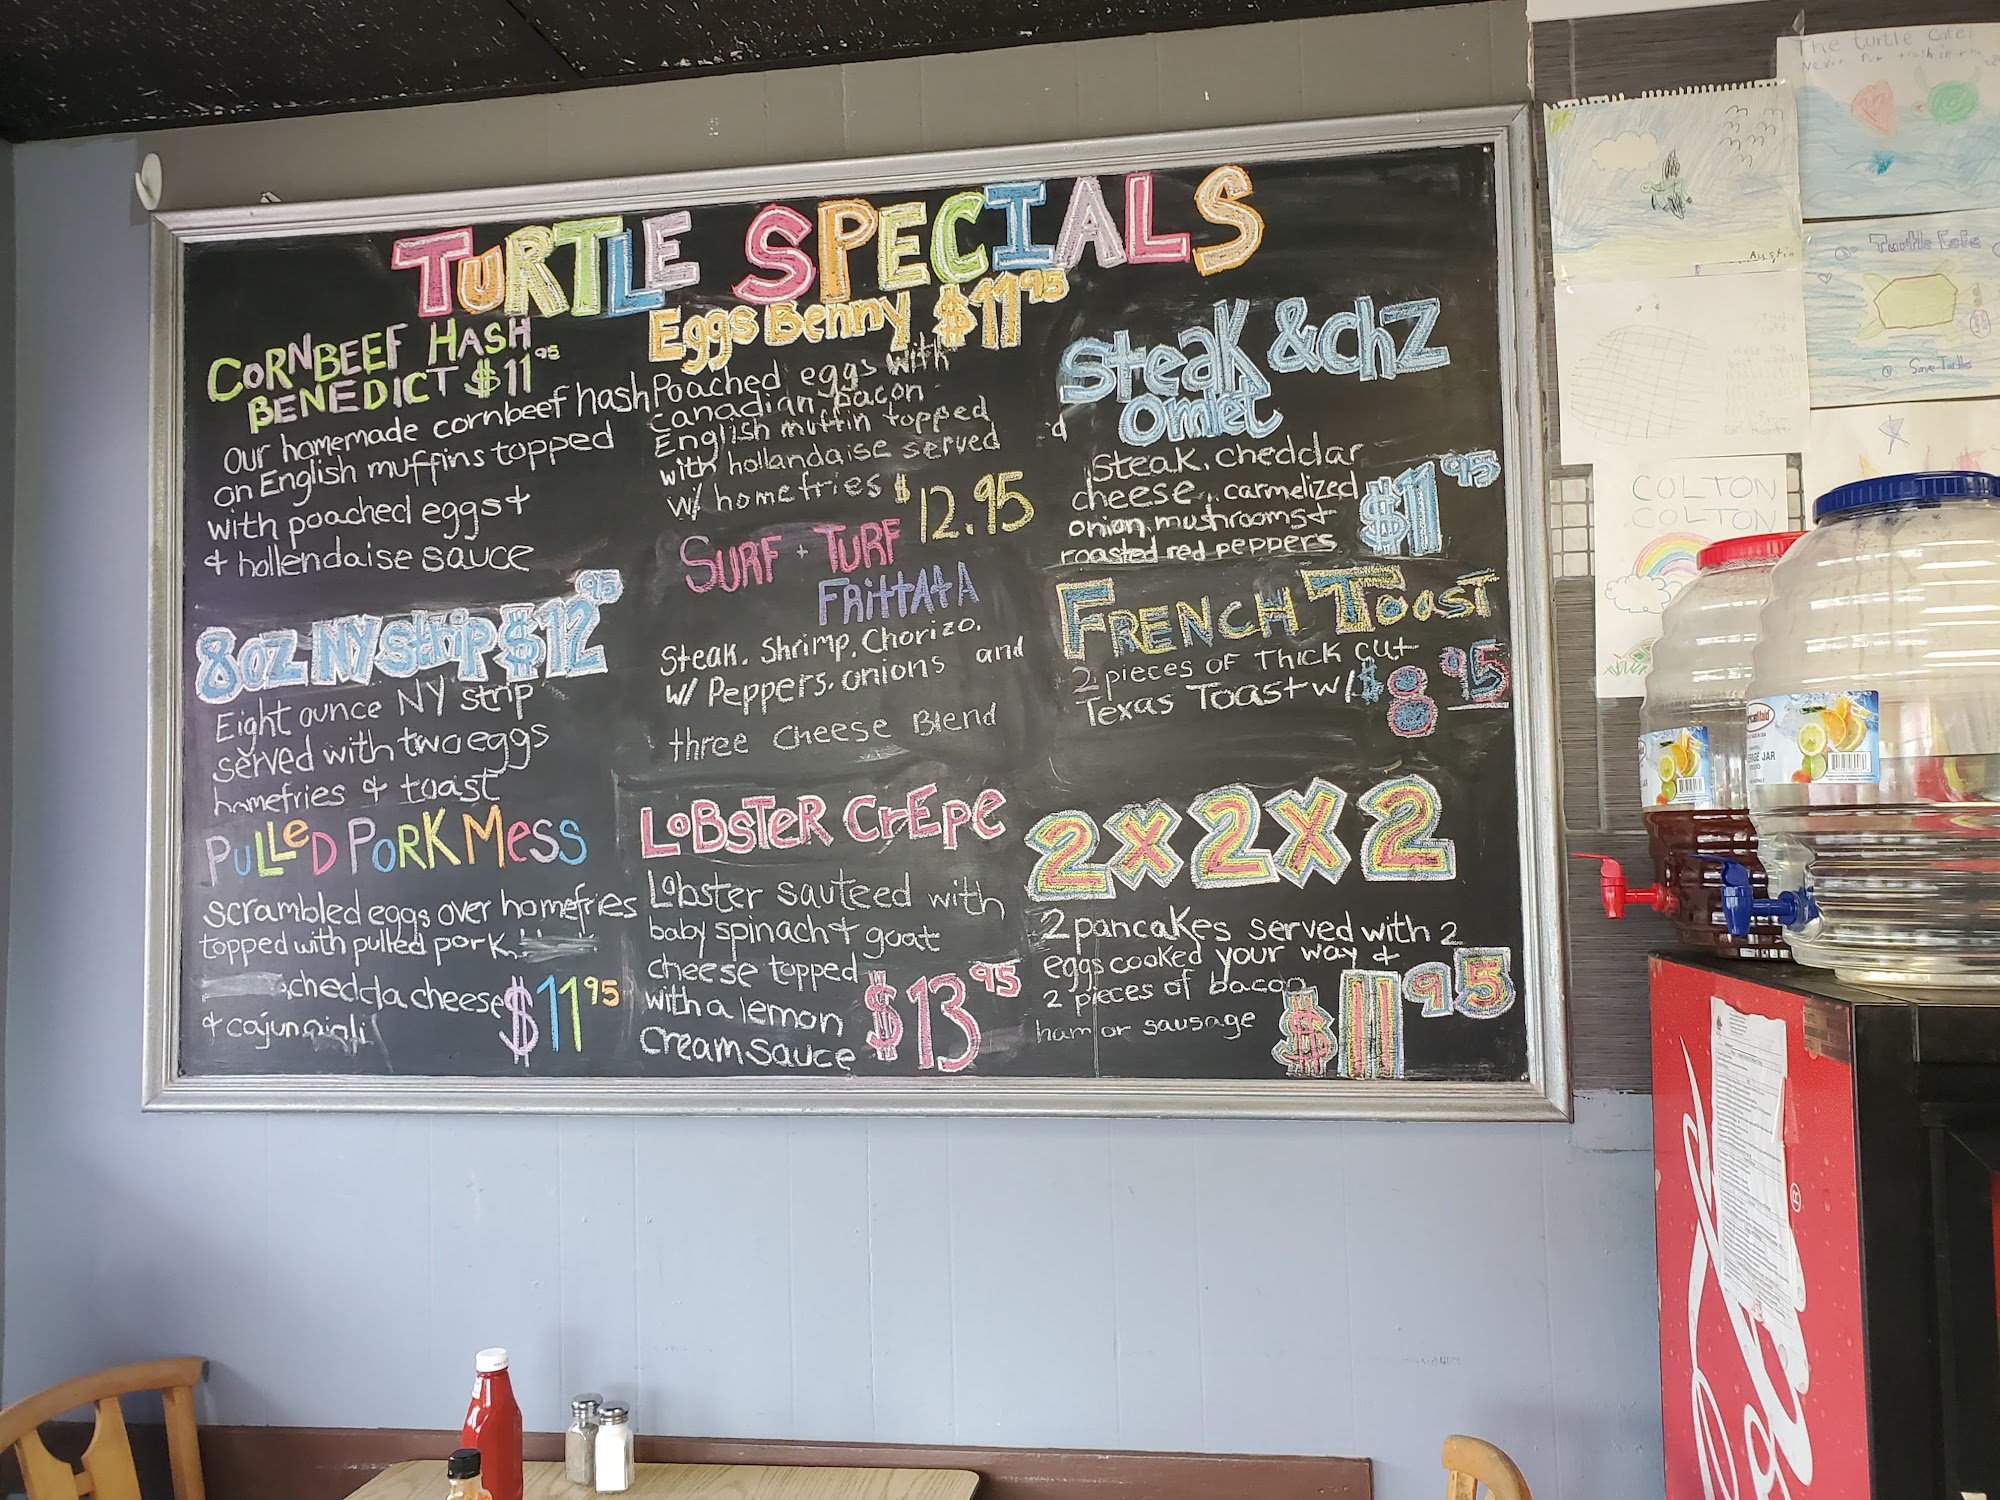 TURTLE SPECIALS
CORNBEEF HASH
BENEDICT $11.95
our homemade cornbeef hash
on English muffins topped
with poached eggs +
& hollendaise sauce
8oz NY Strip $12.95
Eight ounce NY strip
served with two eggs
homefries & toast
PULLED PORK MESS
scrambled eggs over homefries
topped with pulled pork
chedda cheese $11.95
& cajun
Eggs Benny $11.95
Poached eggs with
canadian bacon
English muffin topped
with hollandaise served
w/ homefries $12.95
SURF + TURF
FRITTATA
Steak. Shrimp. Chorizo.
w/ Peppers. onions and
three cheese Blend
LOBSTER CREPE
Lobster sauteed with
baby spinach + goat
cheese topped
with a lemon $13.95
cream sauce
Steak & chz
omlet
steak. cheddar
cheese.. carmelized
onion, mushrooms + $11.95
roasted red peppers
FRENCH TOAST
2 pieces of Thick cut
Texas Toast w/ $8.95
2x2x2
2 pancakes served with 2
eggs cooked your way +
2 pieces of bacon
ham or sausage $11.95
The turtle cafe
Austin
Turtle Cafe
Save Turtles
COLTON
COLTON